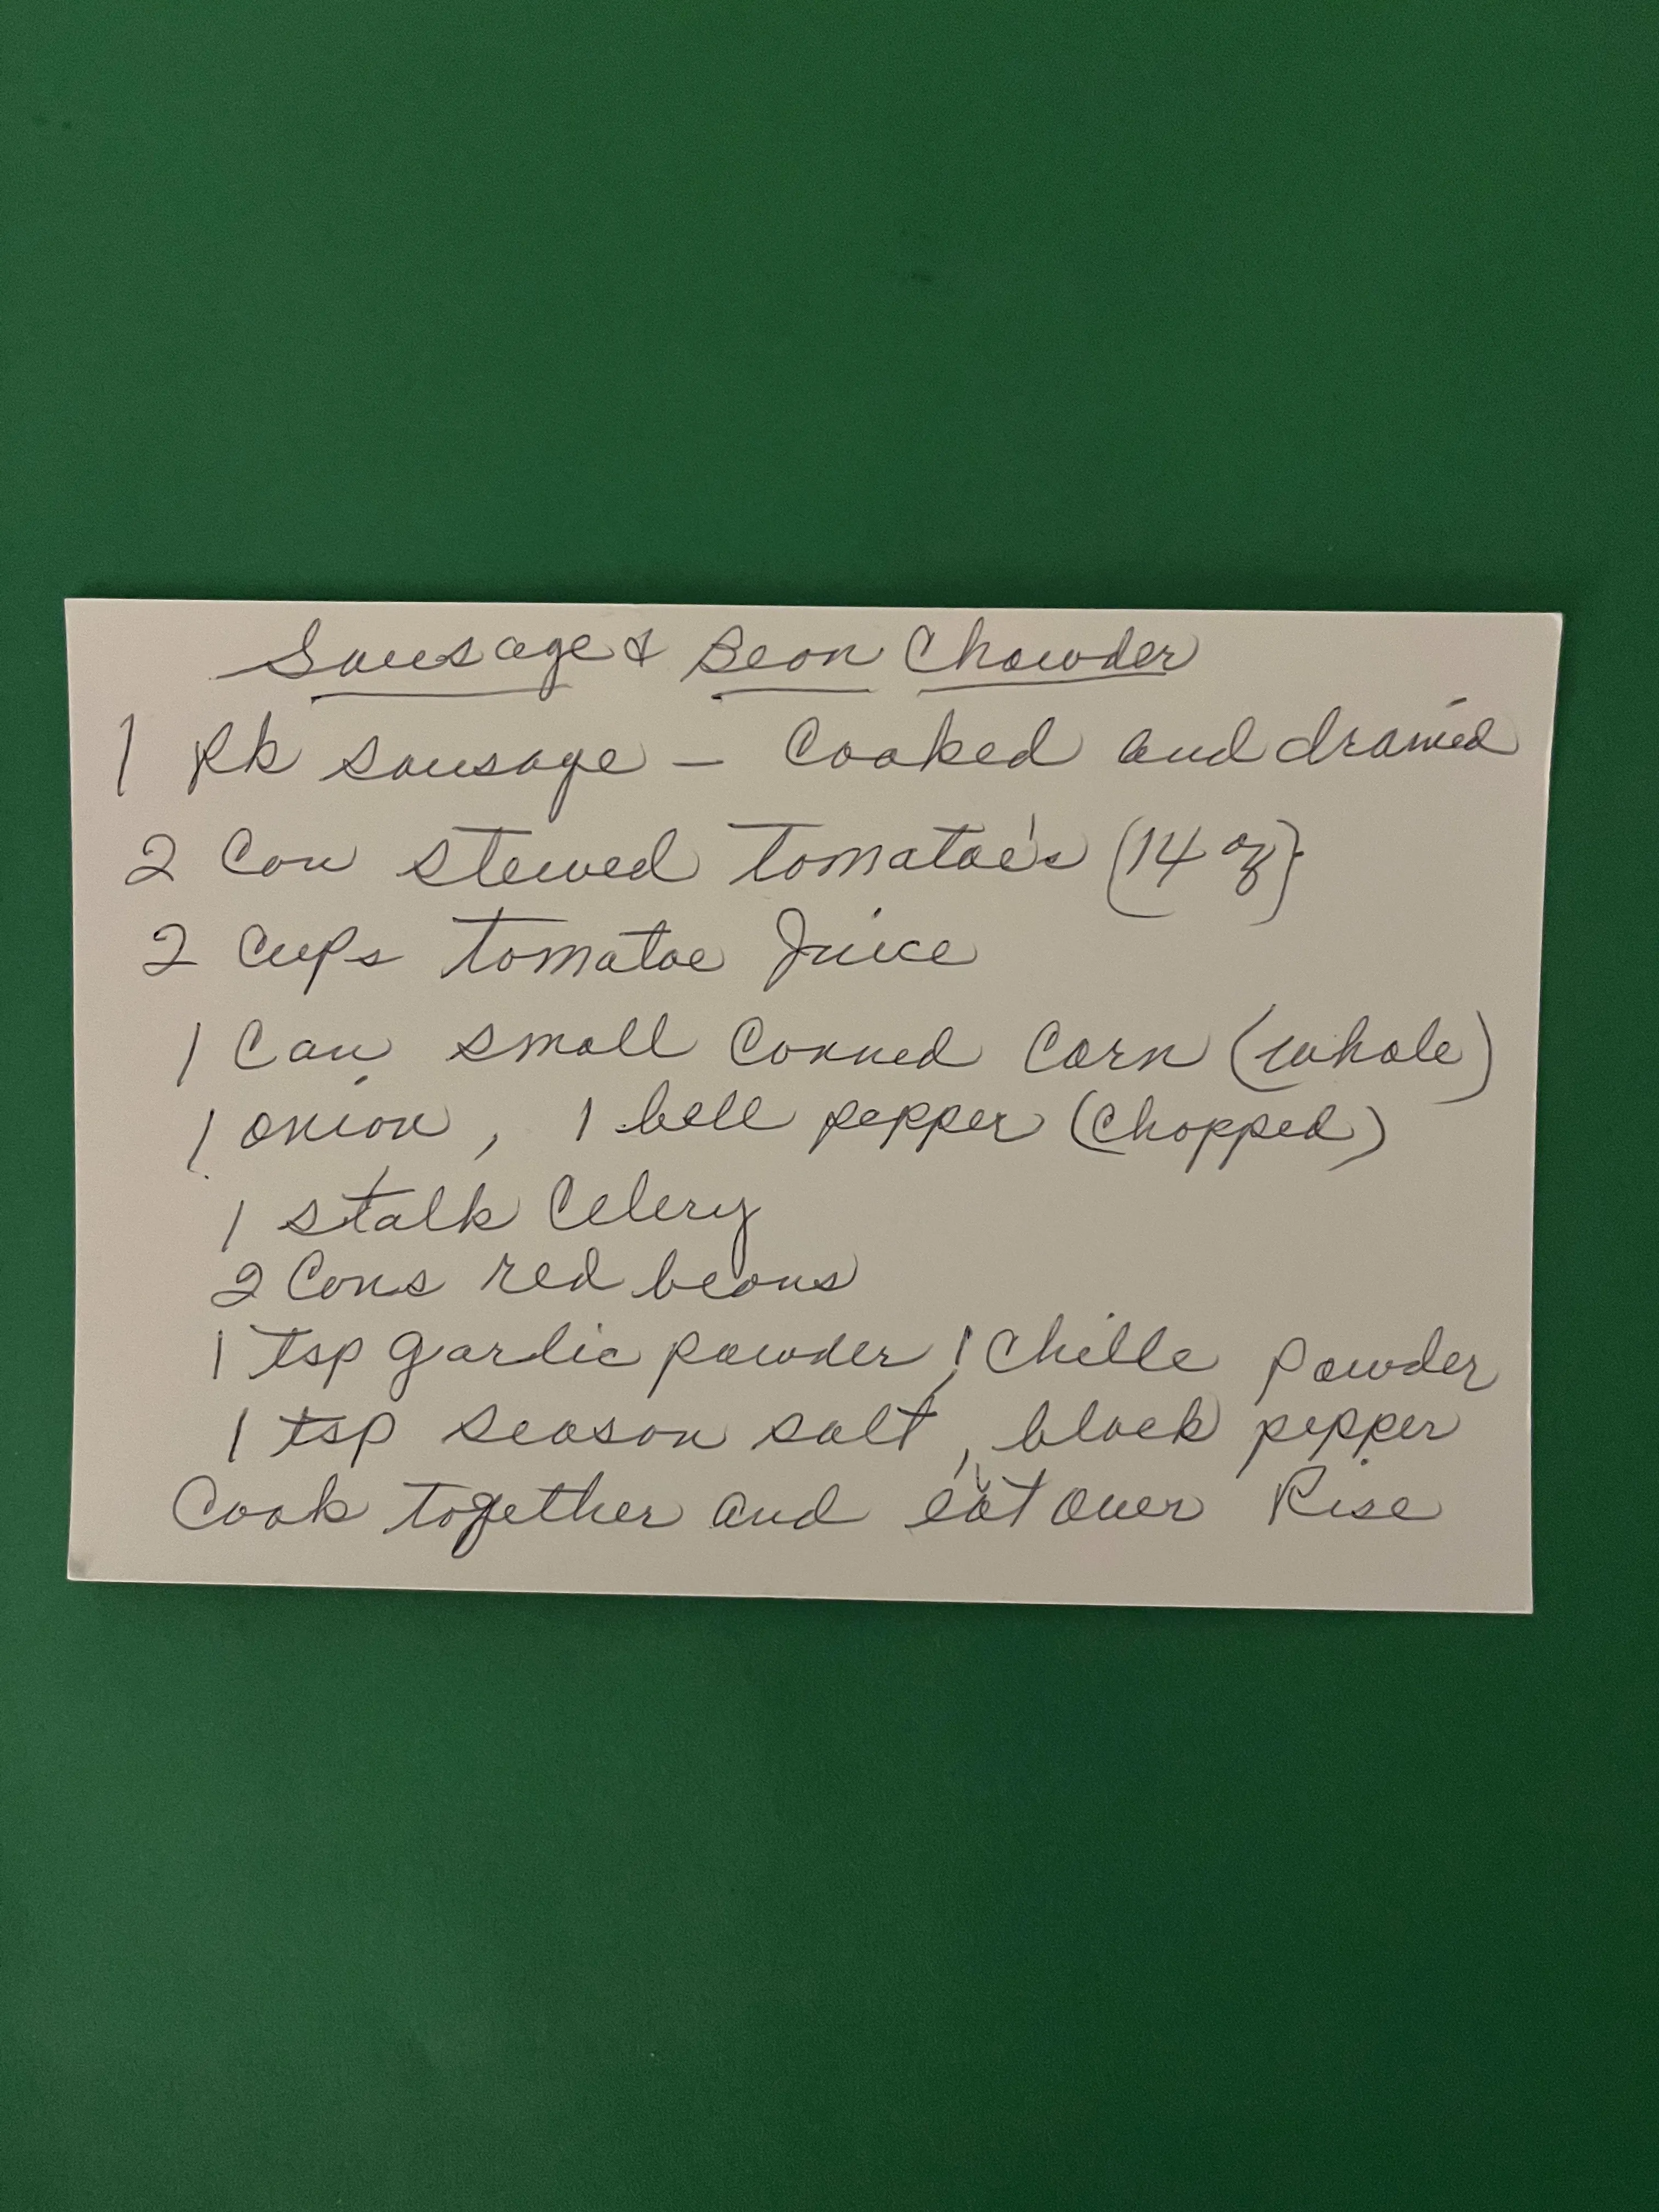 Sausage & Bean Chowder
1 Pk sausage - Cooked and drained
2 Can stewed tomatoe's (14 oz)
2 Cups tomatoe Juice
1 Can small Canned Corn (whole)
1 onion, 1 bell pepper (chopped)
1 stalk Celery
2 Cans red beans
1 tsp garlic powder, 1 Chille Powder
1 tsp season salt, black pepper
Cook together and eat over Rise